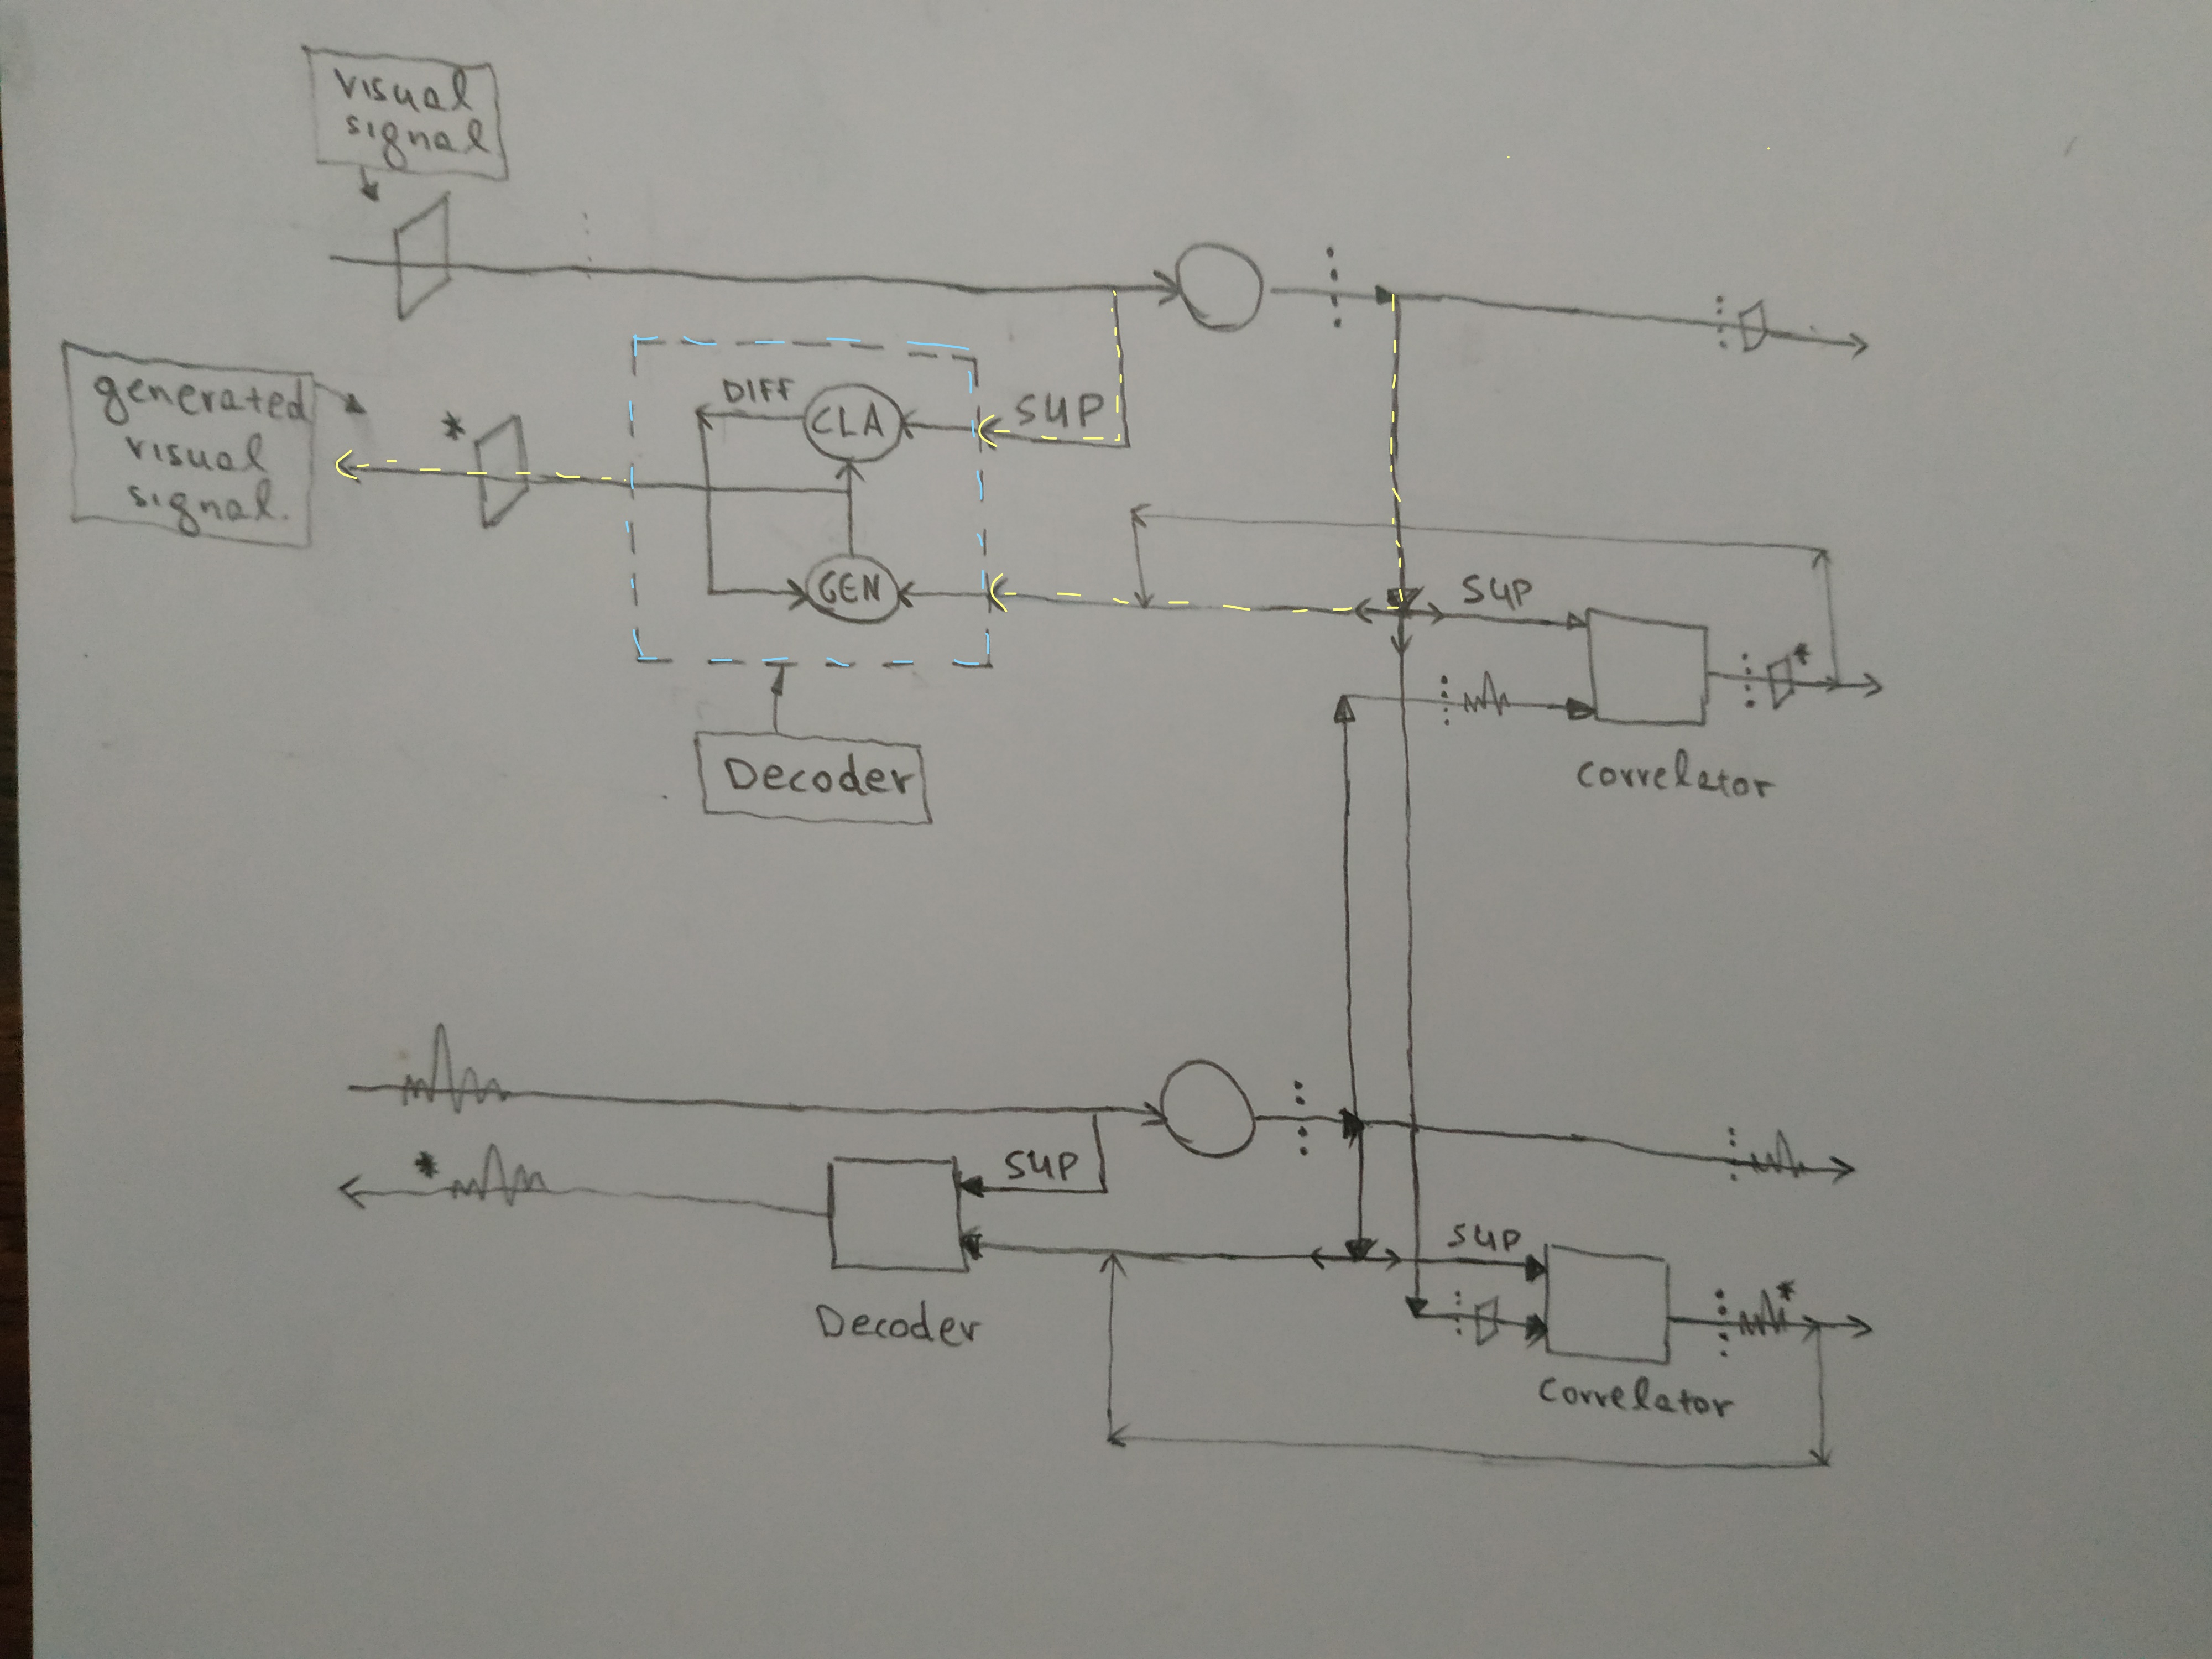 visual
signal
generated
visual
signal.
*
DIFF
CLA
SUP
GEN
SUP
*
Decoder
correlator
*
SUP
SUP
*
Decoder
correlator